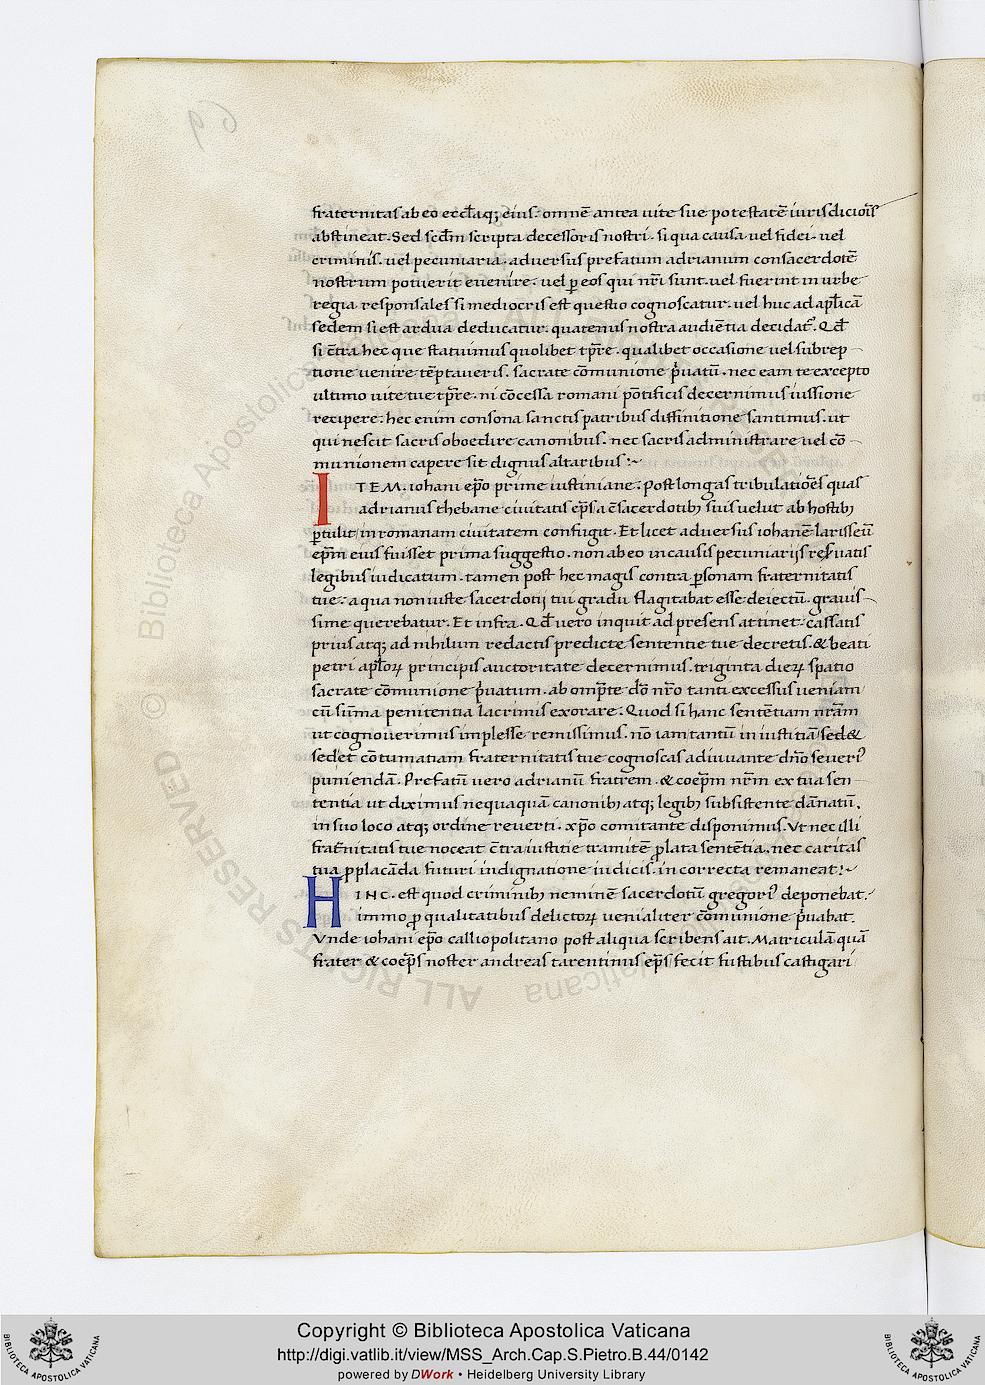 fraternitas ab eo eccl̄aq; eius. omnē antea uite sue potestatē iurisdiciōīs
abstineat. Sed scdm̄ scripta decessoris nostri. si qua causa uel fidei. uel
criminis. uel pecuniaria. aduersus prefatum adrianum consacerdotē
nostrum potuerit euenire. uel ꝑ eos qui nr̄i sunt. uel fuerint in urbe
regia responsales si mediocris est questio cognoscatur. uel huc ad apl̄icā
sedem si est ardua deducatur. quatenus nostra audiētia decidat᷑. Qd̄
si c̄tra hec que statuimus quolibet tp̄re. qualibet occasione uel subrep-
tione uenire tēptaueris. sacrate cōmunione p̄uatū. nec eam te excepto
ultimo uite tue tp̄re. ni cōcessa romani pōtificis decernimus iussione
recipere. hec enim consona sanctis patribus diffinitione santimus. ut
qui nescit sacris oboedire canonibus. nec sacris administrare uel cō-
munionem capere sit dignus altaribus :~
ITEM. iohani ep̄o prime iustiniane. Post longas tribulatiōes quas
adrianus thebane ciuitatis ep̄s a c̄sacerdotibꝫ suis uelut ab hostibꝫ
ꝑtulit in romanam ciuitatem confugit. Et licet aduersus iohanē larisseū
ep̄m eius fuisset prima suggestio. non ab eo in causis pecuniarijs res̄uatis
legibus iudicatum. tamen post hec magis contra ꝑsonam fraternitatis
tue. a qua non iuste sacerdotij tui gradu flagitabat esse deiectū. grauis-
sime querebatur. Et infra. Qd̄ uero inquit ad presens attinet. cassatis
prius atq; ad nihilum redactis predicte sententie tue decretis. & beati
petri apl̄oꝝ principis auctoritate decernimus. triginta dieꝝ spatio
sacrate cōmunione p̄uatum. ab omp̄te dō nr̄o tanti excessus ueniam
cū sūma penitentia lacrimis exorare. Quod si hanc sentētiam nr̄am
ut cognouerimus implesse remissimus. nō iam tantū in iustitiā sed &
sedet cōtumatiam fraternitatis tue cognoscas adiuuante dn̄o seueri᷒
puniendā. Prefatū uero adrianū fratrem. & coep̄m nr̄m ex tua sen-
tentia ut diximus nequaquā canonibꝫ atq; legibꝫ subsistente dānatū.
in suo loco atq; ordine reuerti. xp̄o comitante disponimus. Ut nec illi
frat̄nitatis tue noceat c̄tra iustitie tramitē ꝓlata sentētia. nec caritas
tua ꝓ placāda futuri indignatione iudicis. in correcta remaneat :~
HINC. est quod criminibꝫ neminē sacerdotū gregori᷒ deponebat.
immo ꝓ qualitatibus delictoꝝ uenialiter cōmunione p̄uabat.
Vnde iohani ep̄o calliopolitano post aliqua scribens ait. Matriculā quā
frater & coep̄s noster andreas tarentinus ep̄s fecit fustibus castigari
© Biblioteca Apostolica Vaticana
ALL RIGHTS RESERVED
Copyright © Biblioteca Apostolica Vaticana
http://digi.vatlib.it/view/MSS_Arch.Cap.S.Pietro.B.44/0142
powered by DWork • Heidelberg University Library
BIBLIOTECA APOSTOLICA VATICANA
BIBLIOTECA APOSTOLICA VATICANA